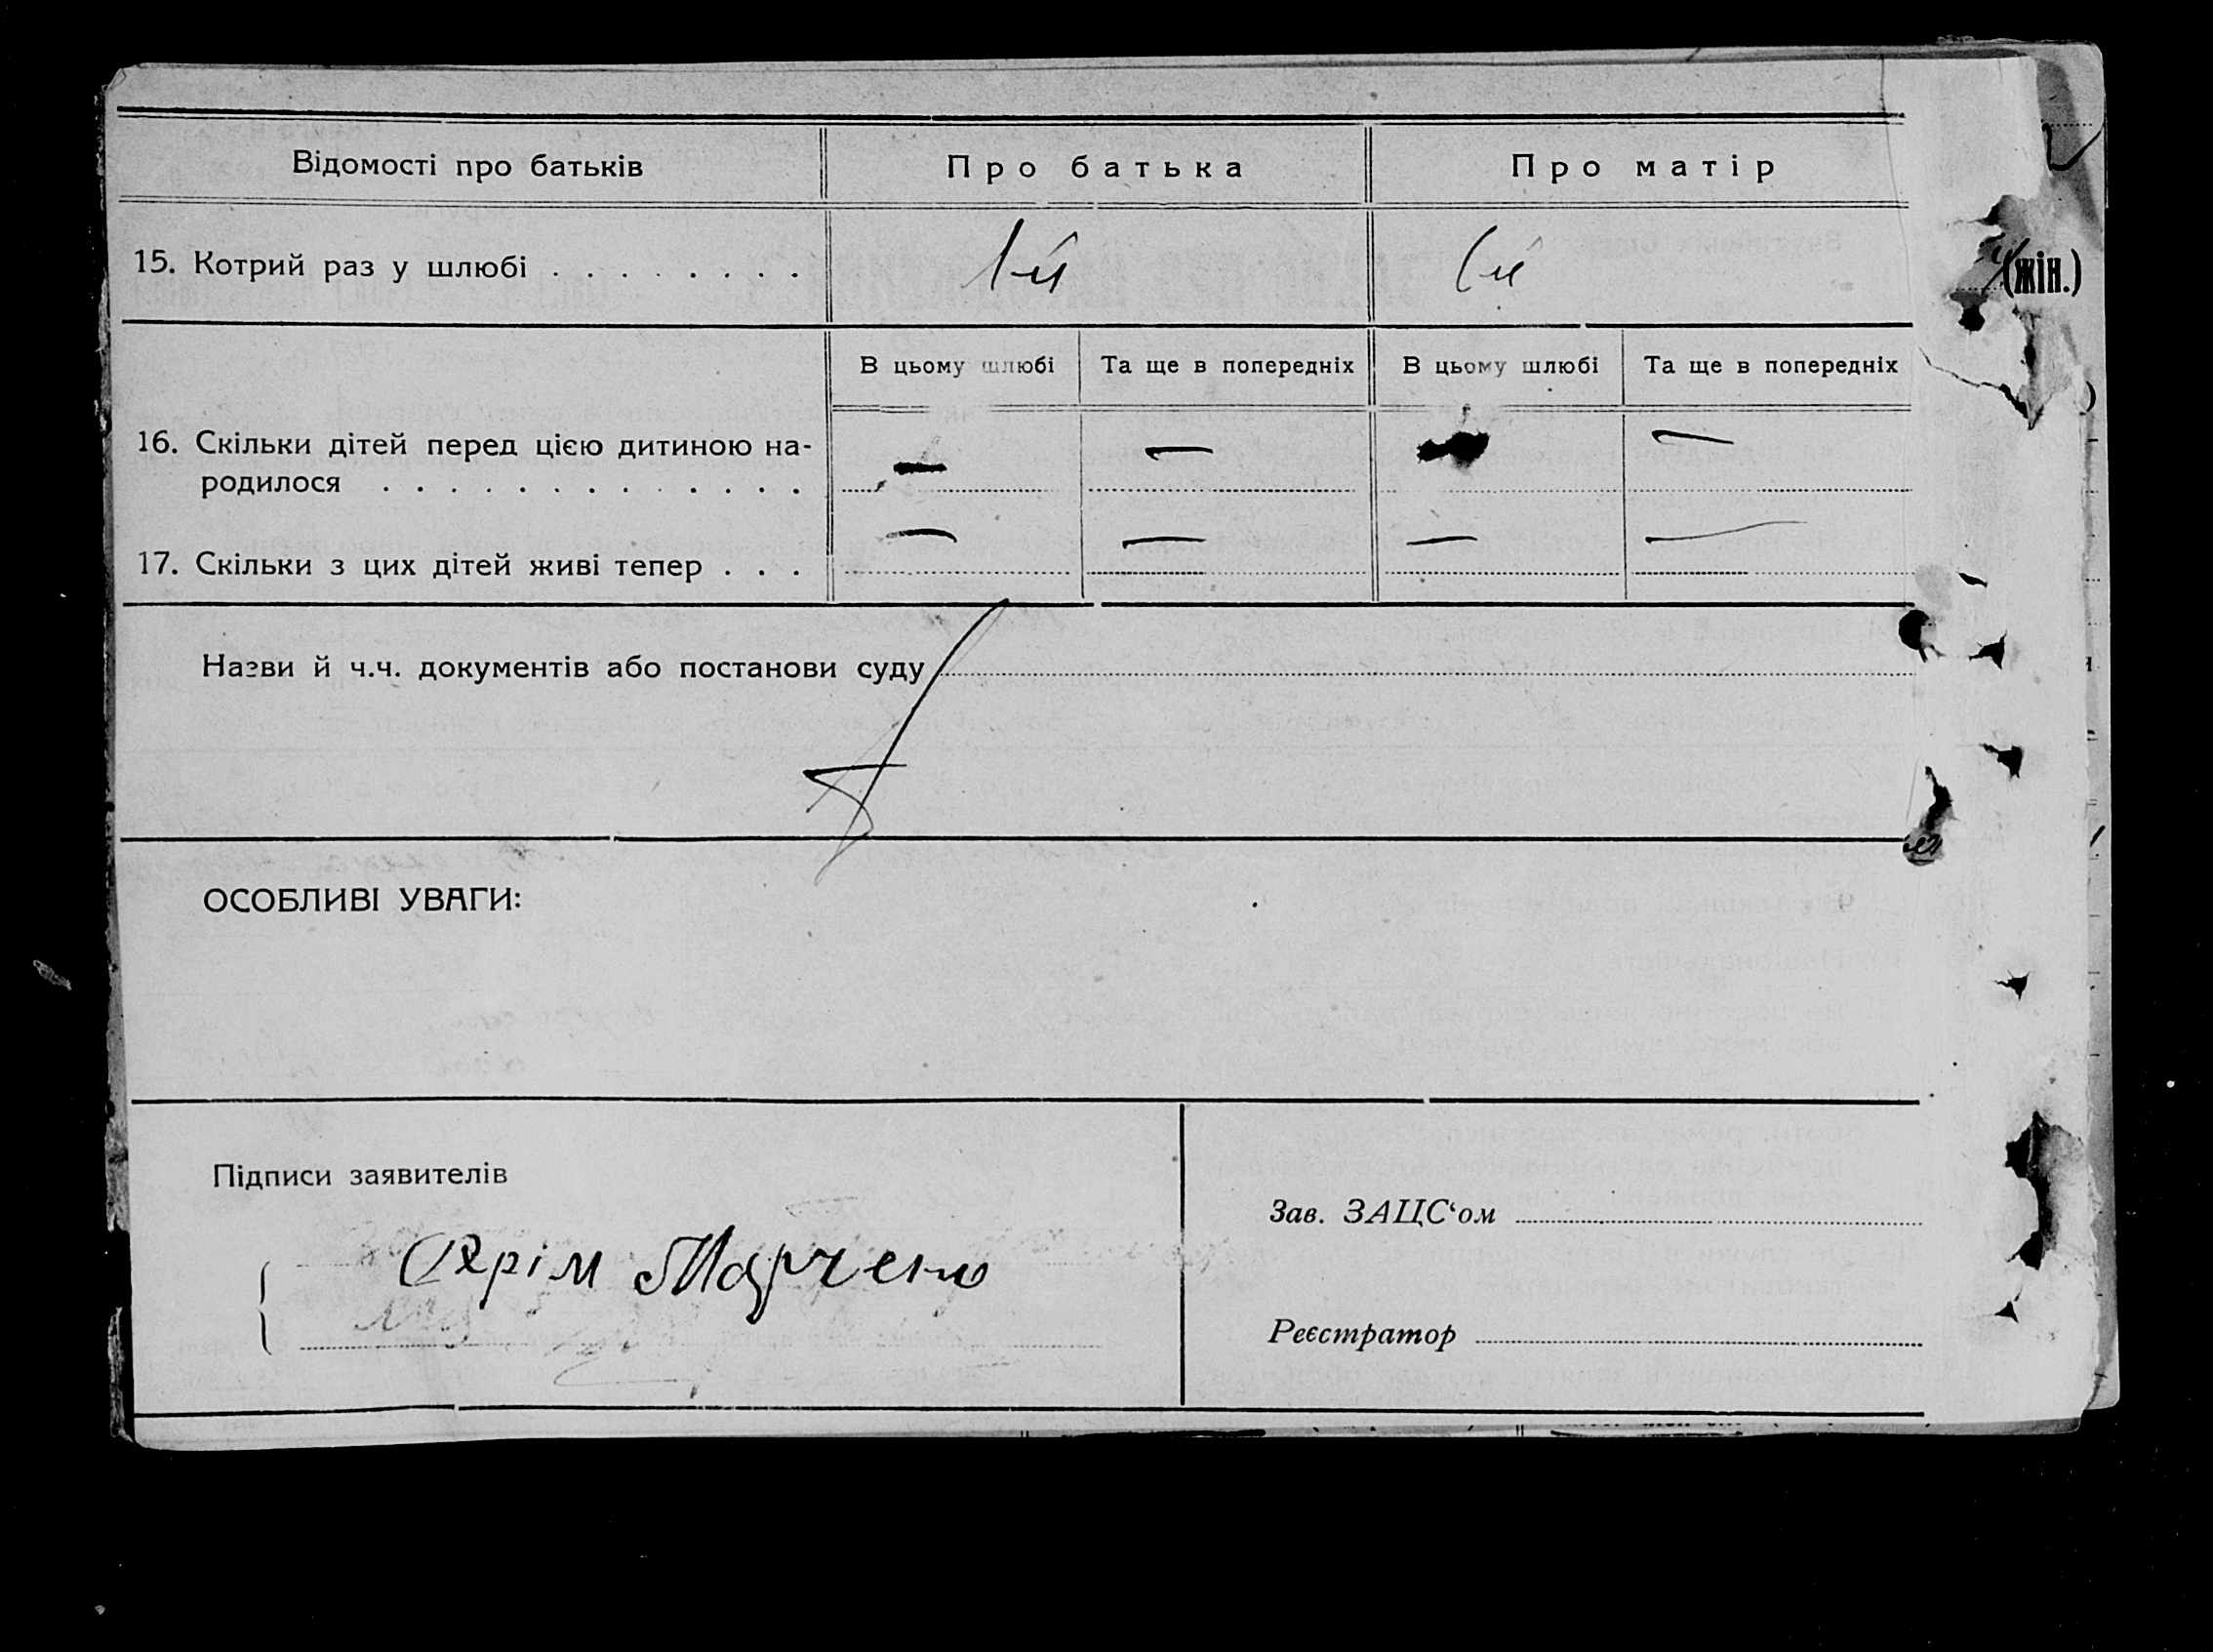 Відомості про батьків Про батька Про матір
15. Котрий раз у шлюбі . . . . . . . . 1-й 1-й
(жін.)
В цьому шлюбі Та ще в попередніх В цьому шлюбі Та ще в попередніх
16. Скільки дітей перед цією дитиною на-
родилося . . . . . . . . . . . . . — — — —
17. Скільки з цих дітей живі тепер . . . — — — —
Назви й ч.ч. документів або постанови суду
ОСОБЛИВІ УВАГИ:
Підписи заявителів
Зав. ЗАЦС‘ом
Марченко
Реєстратор